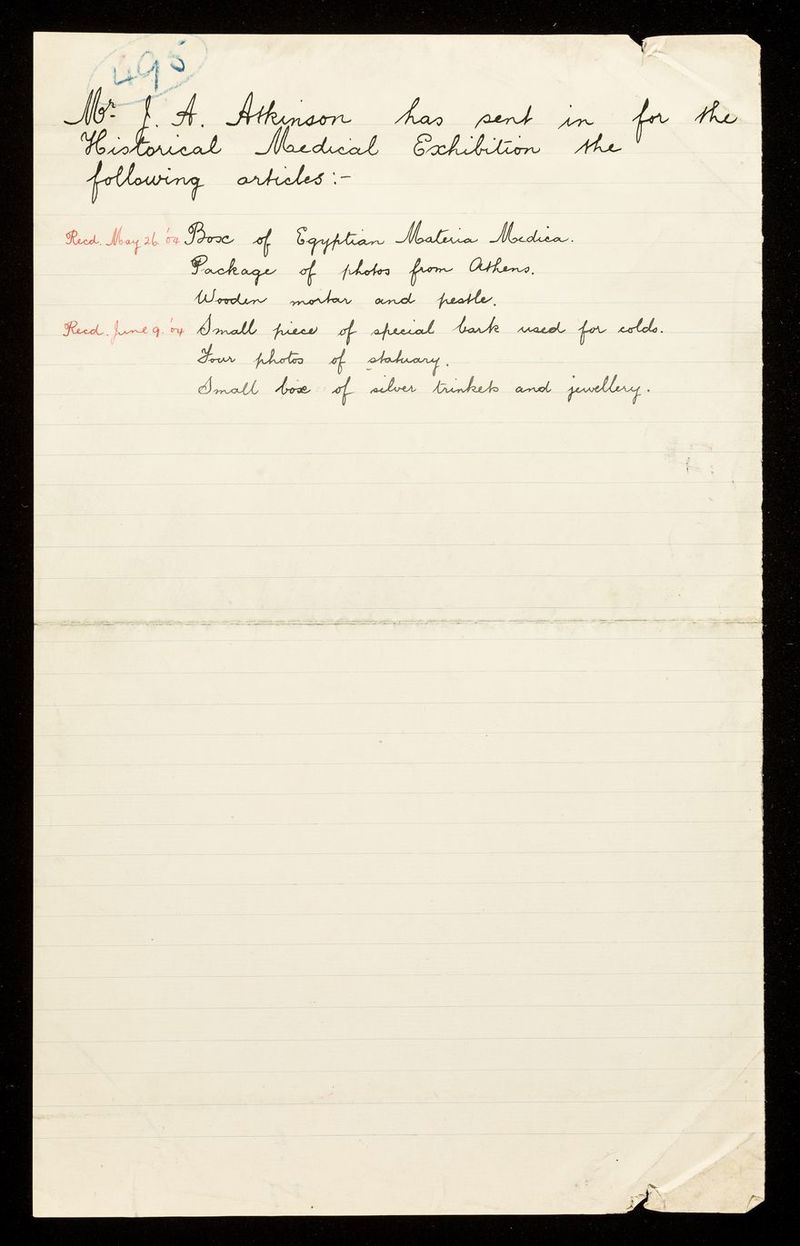 495
Mr. J. A. Atkinson has sent in for the
Historical Medical Exhibition the
following articles:-
Recd. May 26 '04 Box of Egyptian Materia Medica.
Package of photos from Athens.
Wooden mortar and pestle.
Recd. June 9. '04 Small piece of special bark used for colds.
Four photos of statuary.
Small box of silver trinkets and jewellery.